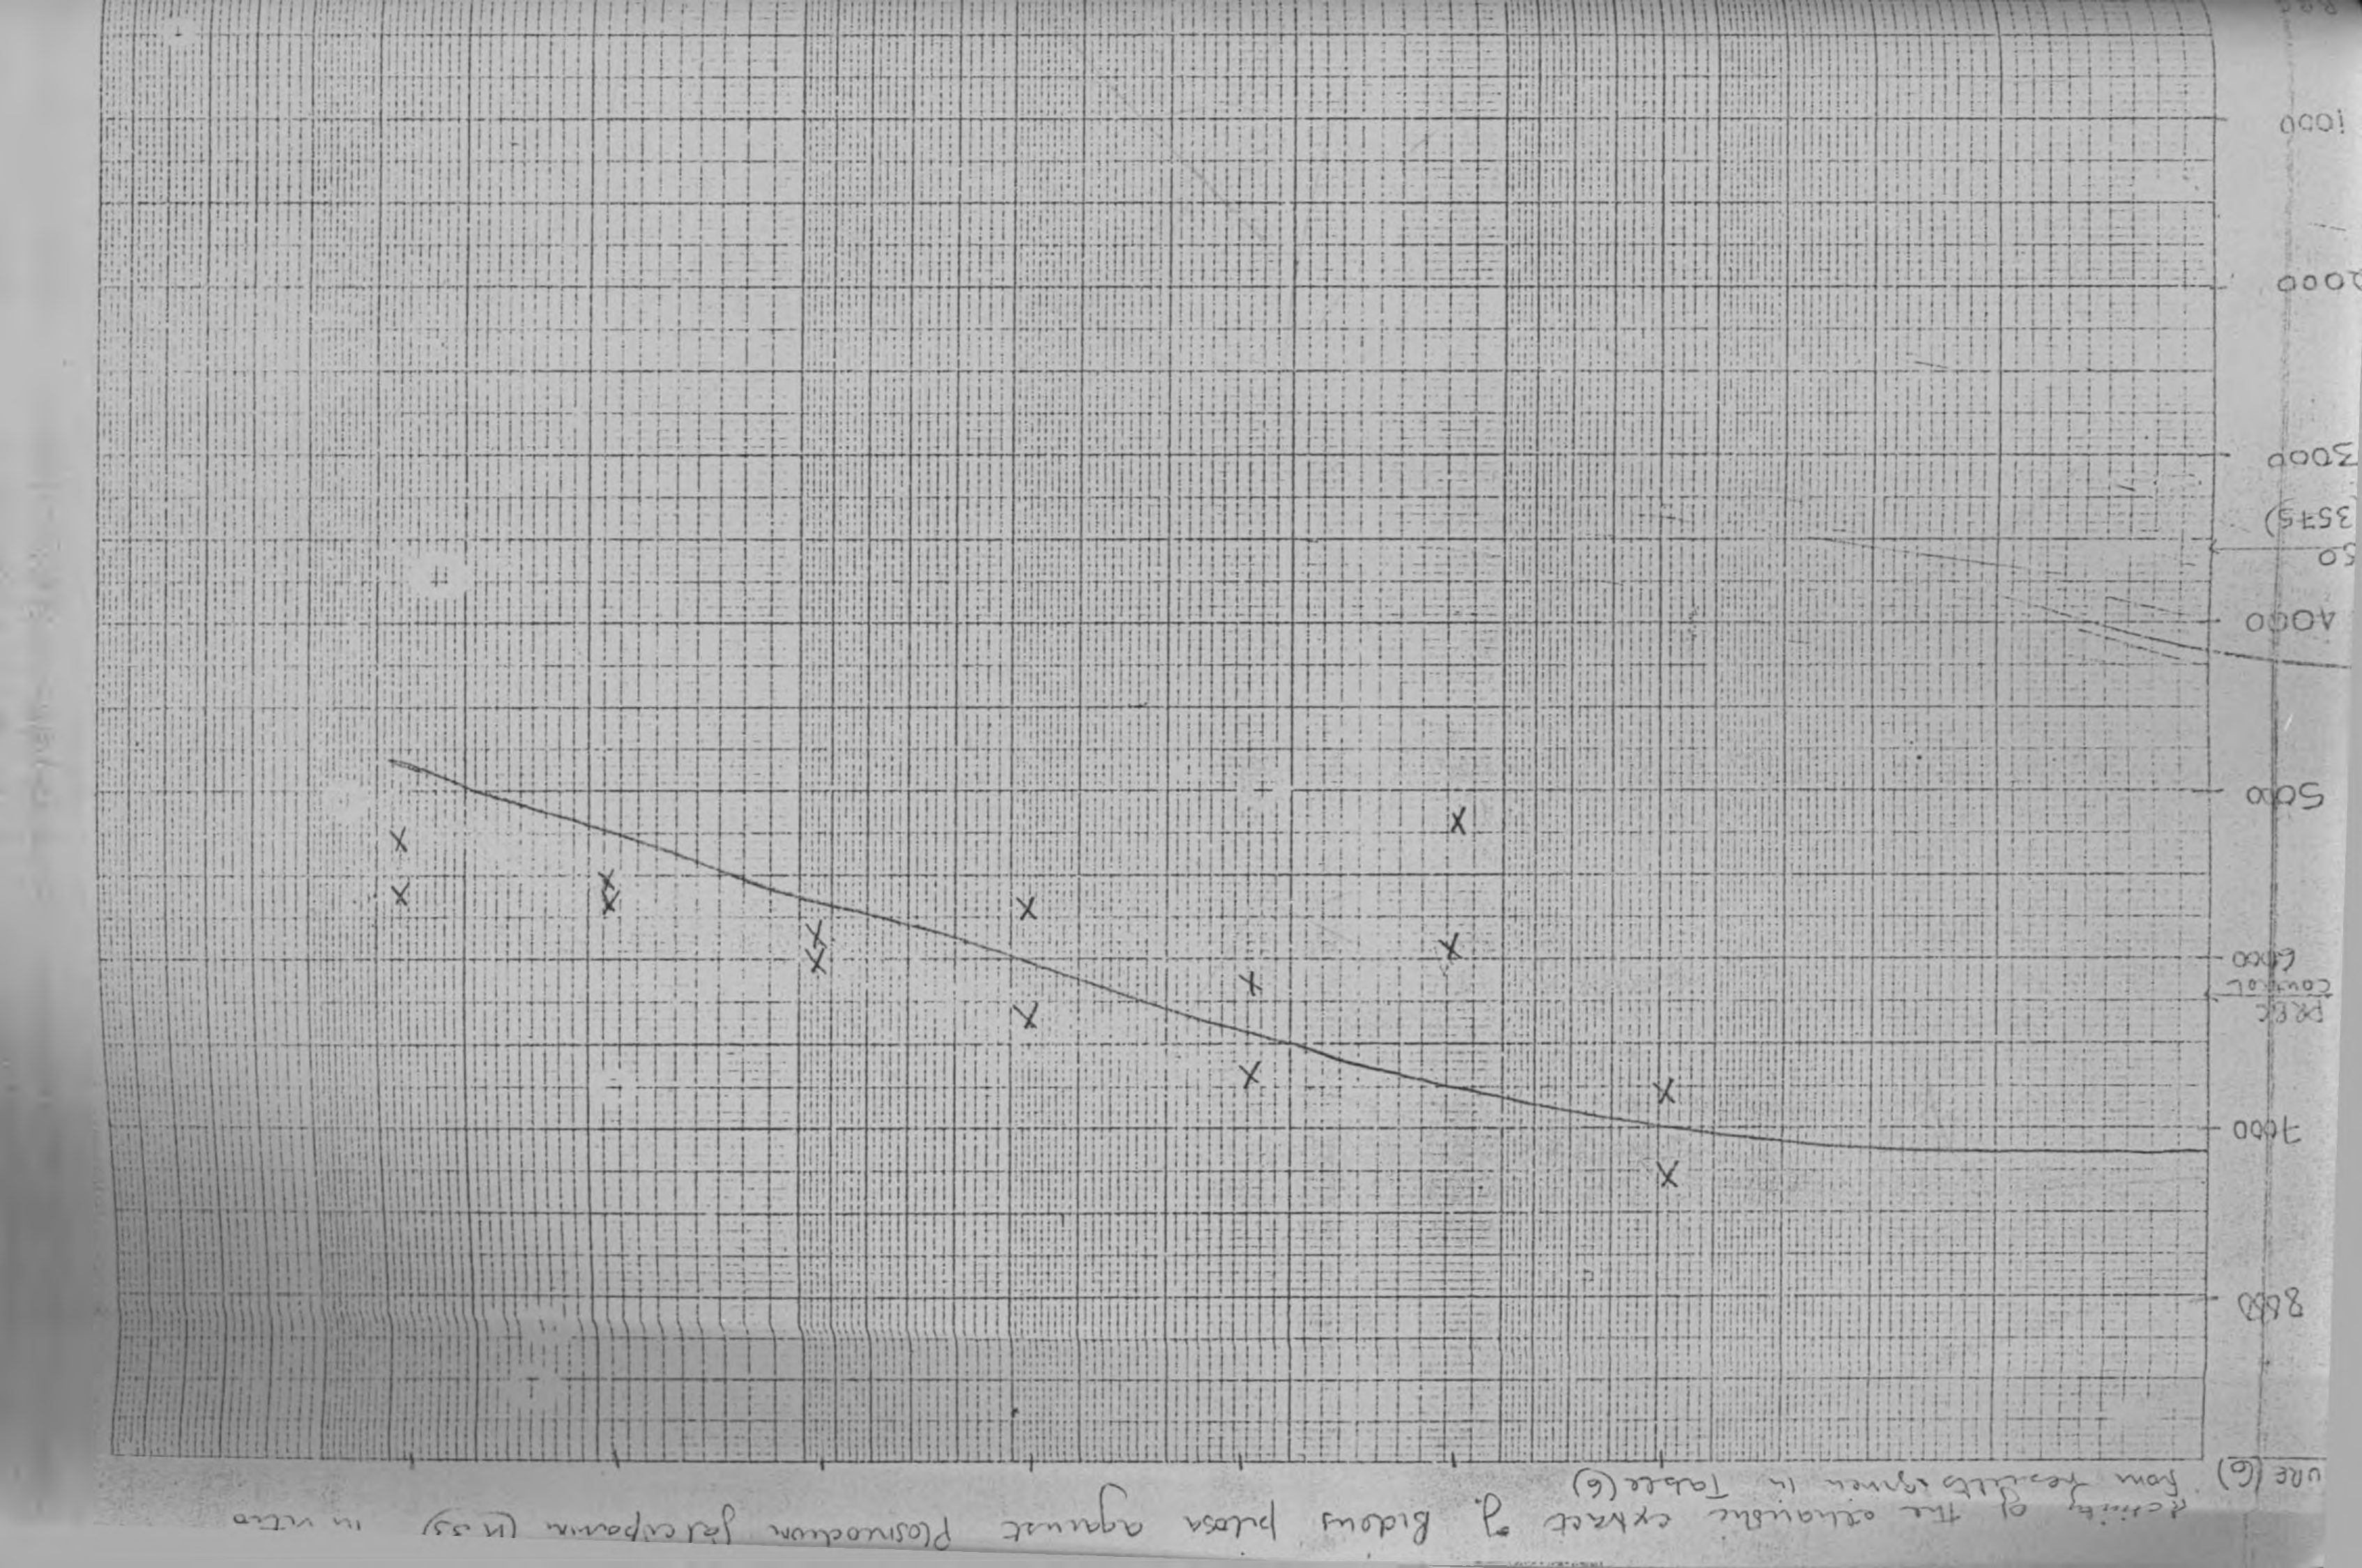 URE (6)
Activity of the ethanolic extract of Bidens pilosa against Plasmodium falciparum in vitro
from results given in Table (6)
8000
7000
PRBC
CONTROL
6000
5000
4000
50
3575)
3000
2000
1000